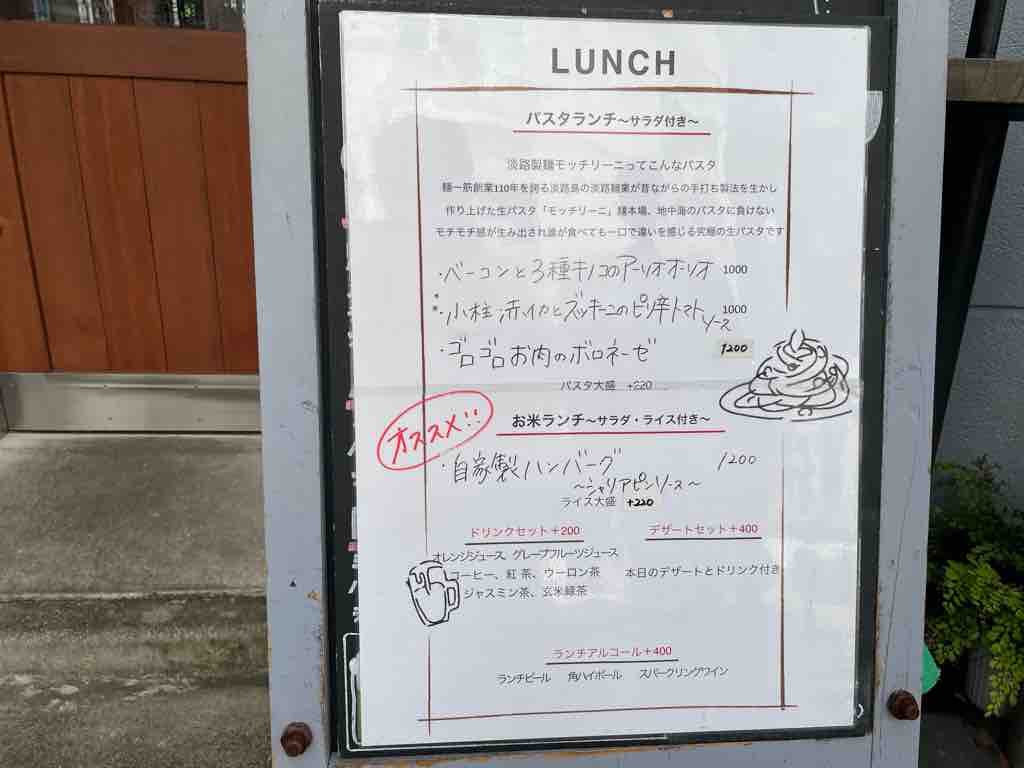 LUNCH
パスタランチ～サラダ付き～
淡路製麺モッチリーニってこんなパスタ
麺一筋創業110年を誇る淡路島の淡路麺業が昔ながらの手打ち製法を生かし
作り上げた生パスタ「モッチリーニ」麺本場、地中海のパスタに負けない
モチモチ感が生み出され誰が食べても一口で違いを感じる究極の生パスタです
・ベーコンと3種キノコのアーリオオーリオ 1000
・小柱・赤イカとズッキーニのピリ辛トマトソース 1000
・ゴロゴロお肉のボロネーゼ 1200
パスタ大盛 +220
オススメ!!
お米ランチ～サラダ・ライス付き～
・自家製ハンバーグ 1200
～シャリアピンソース～
ライス大盛 +220
ドリンクセット+200
オレンジジュース、グレープフルーツジュース
コーヒー、紅茶、ウーロン茶
ジャスミン茶、玄米緑茶
デザートセット+400
本日のデザートとドリンク付き
ランチアルコール+400
ランチビール 角ハイボール スパークリングワイン